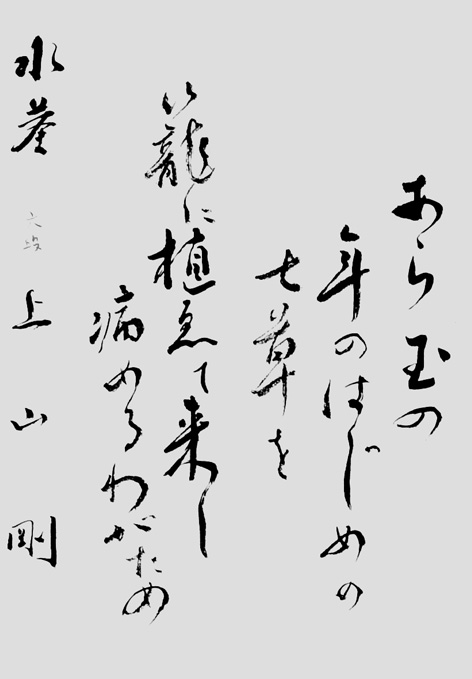 あら玉の
年のはじめの
七草を
籠に植ゑて来し
病めるわがため
水莖 上山剛